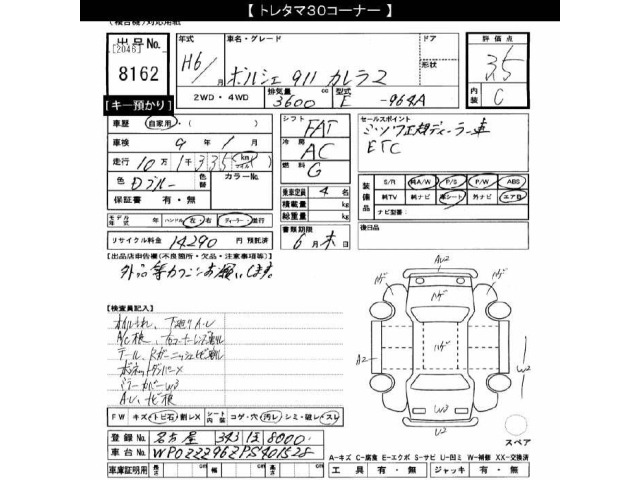 【 トレタマ30コーナー 】
(複合機)対応用紙
出品No.
[2046]
8162
[キー預かり]
年式 H6/月
車名・グレード ポルシェ 911 カレラ2
ドア
形状
2WD・4WD
排気量 3600 cc
型式 E-964A
評価点
3.5
内装 C
車歴 自家用・( )
車検 9年 1月
走行 10万 1千 335 km マイル
色 Dブルー 色替 カラーNo.
保証書 有・無
モデル年式 年 ハンドル 左・右 ディーラー・並行
リサイクル料金 14290 円 預託済
シフト FAT
冷房 AC
燃料 G
乗車定員 4 名
積載量 kg
総重量 kg
書類期限 6月末日
セールスポイント
ミツワ正規ディーラー車
ETC
装備品
S/R 純A/W P/S P/W ABS
純TV 純ナビ 革シート 外ナビ エアB
ナビ型番:
後日品
[出品店申告欄(不良箇所・欠品・注意事項等)]
外品等カクニンお願いします。
[検査員記入]
オイルもれ、下廻りイル
A/C検、
ボンネットダンパーX
ミラーカバーW3
AU、ナビ検
FW キズ・トビ石・割レX シート内装 コゲ・穴・汚レ・シミ・破レ・スレ
登録No. 名古屋 343 ほ 8000
車台No. WP0ZZZ96ZPS401528
車庫証明用 長さ cm 幅 cm 高さ cm
AU2
ハゲ
ハゲ
ハゲ
ハゲ
ハゲ
A2
W2
W3
U2
スペア
A-キズ C-腐食 E-エクボ S-サビ U-凹ミ W-補修 XX-交換済
工具 有・無 ジャッキ 有・無